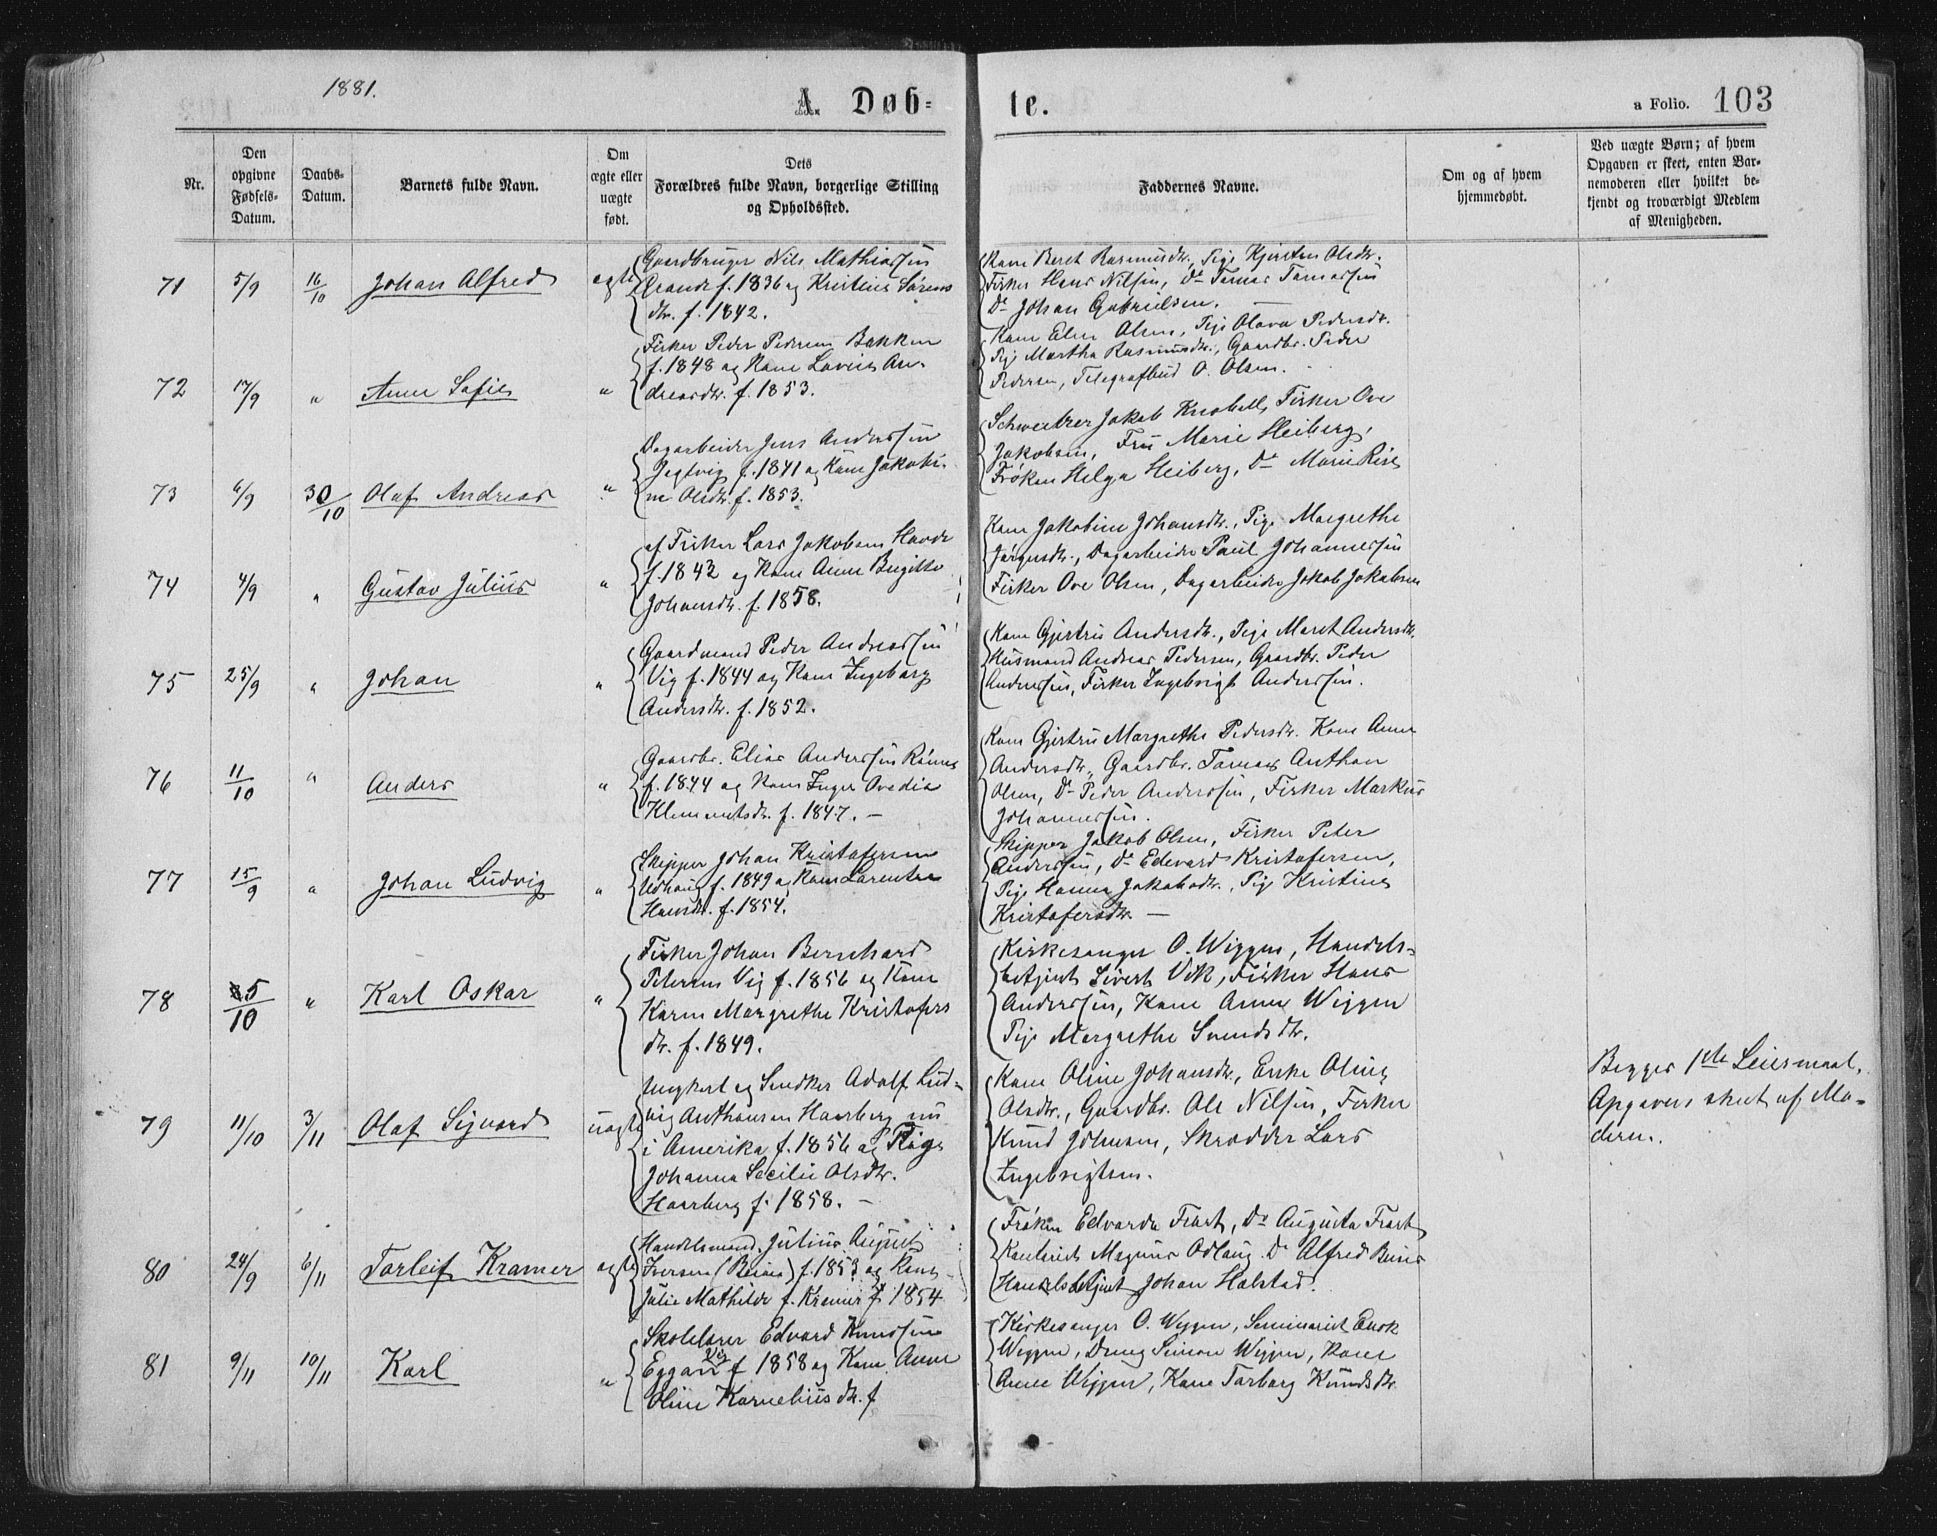 1881.
A. Døb-
te.
a Folio. 103
Nr.
Den opgivne Fødsels-Datum.
Daabs-Datum.
Barnets fulde Navn.
Om ægte eller uægte født.
Dets Forældres fulde Navn, borgerlige Stilling og Opholdssted.
Faddernes Navne.
Om og af hvem hjemmedøbt.
Ved uægte Børn; af hvem Opgaven er skeet, enten Barnemoderen eller hvilket bekjendt og troværdigt Medlem af Menigheden.
71 5/9 16/10 Johan Alfred ægte
Gaardbruger Nils Mathiassen
f. 1836 og Kristine Sørens
dtr. f. 1842.
Kone Beret Rasmusdtr., Pige Kjersten Olsdtr.
Fisker Hans Nilsen, Do Tomas Tomassen
Do Johan Gabrielsen.
72 17/9 " Anne Sofie "
Fisker Peder Pedersen Bakken
f. 1848 og Kone Lovise An-
dreasdtr. f. 1853.
Kone Elen Olsen, Pige Olava Pedersdtr.
Pige Martha Rasmusdtr., Gaardbr. Peder
Pedersen, Telegrafbud O. Olsen.
73 6/9 30/10 Olaf Andreas "
Dagarbeider Jens Anderssen
Jegtvig f. 1841 og Kone Jakobi-
ne Olsdtr. f. 1853.
Schweitzer Jakob Knobell, Fisker Ove
Jakobsen, Fru Marie Heiberg,
Frøken Helga Heiberg, Do Marie
74 4/9 " Gustav Julius "
af Fisker Lars Jakobsen Havde
f. 1842 og Kone Anne Brigitte
Johansdtr. f. 1858.
Kone Jakobine Johansdtr., Pige Margrethe
Jørgensdtr., Dagarbeider Paul Johannessen
Fisker Ove Olsen, Dagarbeider Jakob Jakobsen
75 25/9 " Johan "
Gaardmand Peder Andreassen
Vig f. 1844 og Kone Ingeborg
Andersdtr. f. 1852.
Kone Gjertru Andersdtr., Pige Maret Andersdtr.
Husmand Andreas Pedersen, Gaardbr. Peder
Anderssen, Fisker Ingebrigt Anderssen.
76 11/10 " Anders "
Gaardbr. Elias Anderssen
f. 1844 og Kone Inger Ovedia
Klemmetsdr. f. 1847. —
Kone Gjertru Margrethe Pedersdtr. Kone Anne
Andersdtr., Gaardbr. Tomas Anthon
Olsen, Do Peder Anderssen, Fisker Markus
Johannessen.
77 15/9 " Johan Ludvig "
Skipper Johan Kristofersen
Udhaug f. 1849 og Kone Larentze
Hansdtr. f. 1854.
Skipper Jakob Olsen, Fisker Peter
Anderssen, Do Edevard Kristofersen,
Pige Hanna Jakobsdtr., Pige Kristine
Kristofersdtr. —
78 5/10 " Karl Oskar "
Fisker Johan Bernhard
Petersen Vig f. 1856 og Kone
Karen Margrethe Kristofers
dtr. f. 1849.
Kirkesanger O. Wiggen, Handels-
betjent Sivert Vik, Fisker Hans
Anderssen, Kone Anne Wiggen
Pige Margrethe Svendsdtr.
79 11/10 3/11 Olaf Sigvard uægte
Ungkarl og Snedker Adolf Lud-
vig Anthonsen Haarberg nu
i Amerika f. 1856 og Pige
Johanna Secilie Olsdtr.
Haarberg f. 1858. —
Kone Oline Johansdtr., Enke Oline
Olsdtr., Gaardbr. Ole Nilsen, Fisker
Knud Johnsen, Skrædder Lars
Ingebrigtsen.
Begges 1ste Leiermaal,
Opgaven skeet af Mo-
deren.
80 24/9 6/11 Torleif Kramer ægte
Handelsmand Julius August
Iversen (Beian) f. 1853 og Kone
Julie Mathilde f. Kramer f. 1854
Frøken Edvarda Frost, Do Augusta Frost
Magnus Odlaug Do Alfred
Handelsbetjent Johan Halstad.
81 9/11 10/11 Karl "
Skolelærer Edvard Knudsen
Eggan Vig f. 1858 og Kone Anne
Oline Korneliusdtr. f
Kirkesanger O. Wiggen, Seminarist Enok
Wiggen, Dreng Simon Wiggen, Kone
Anne Wiggen, Kone Torborg Knudsdtr.